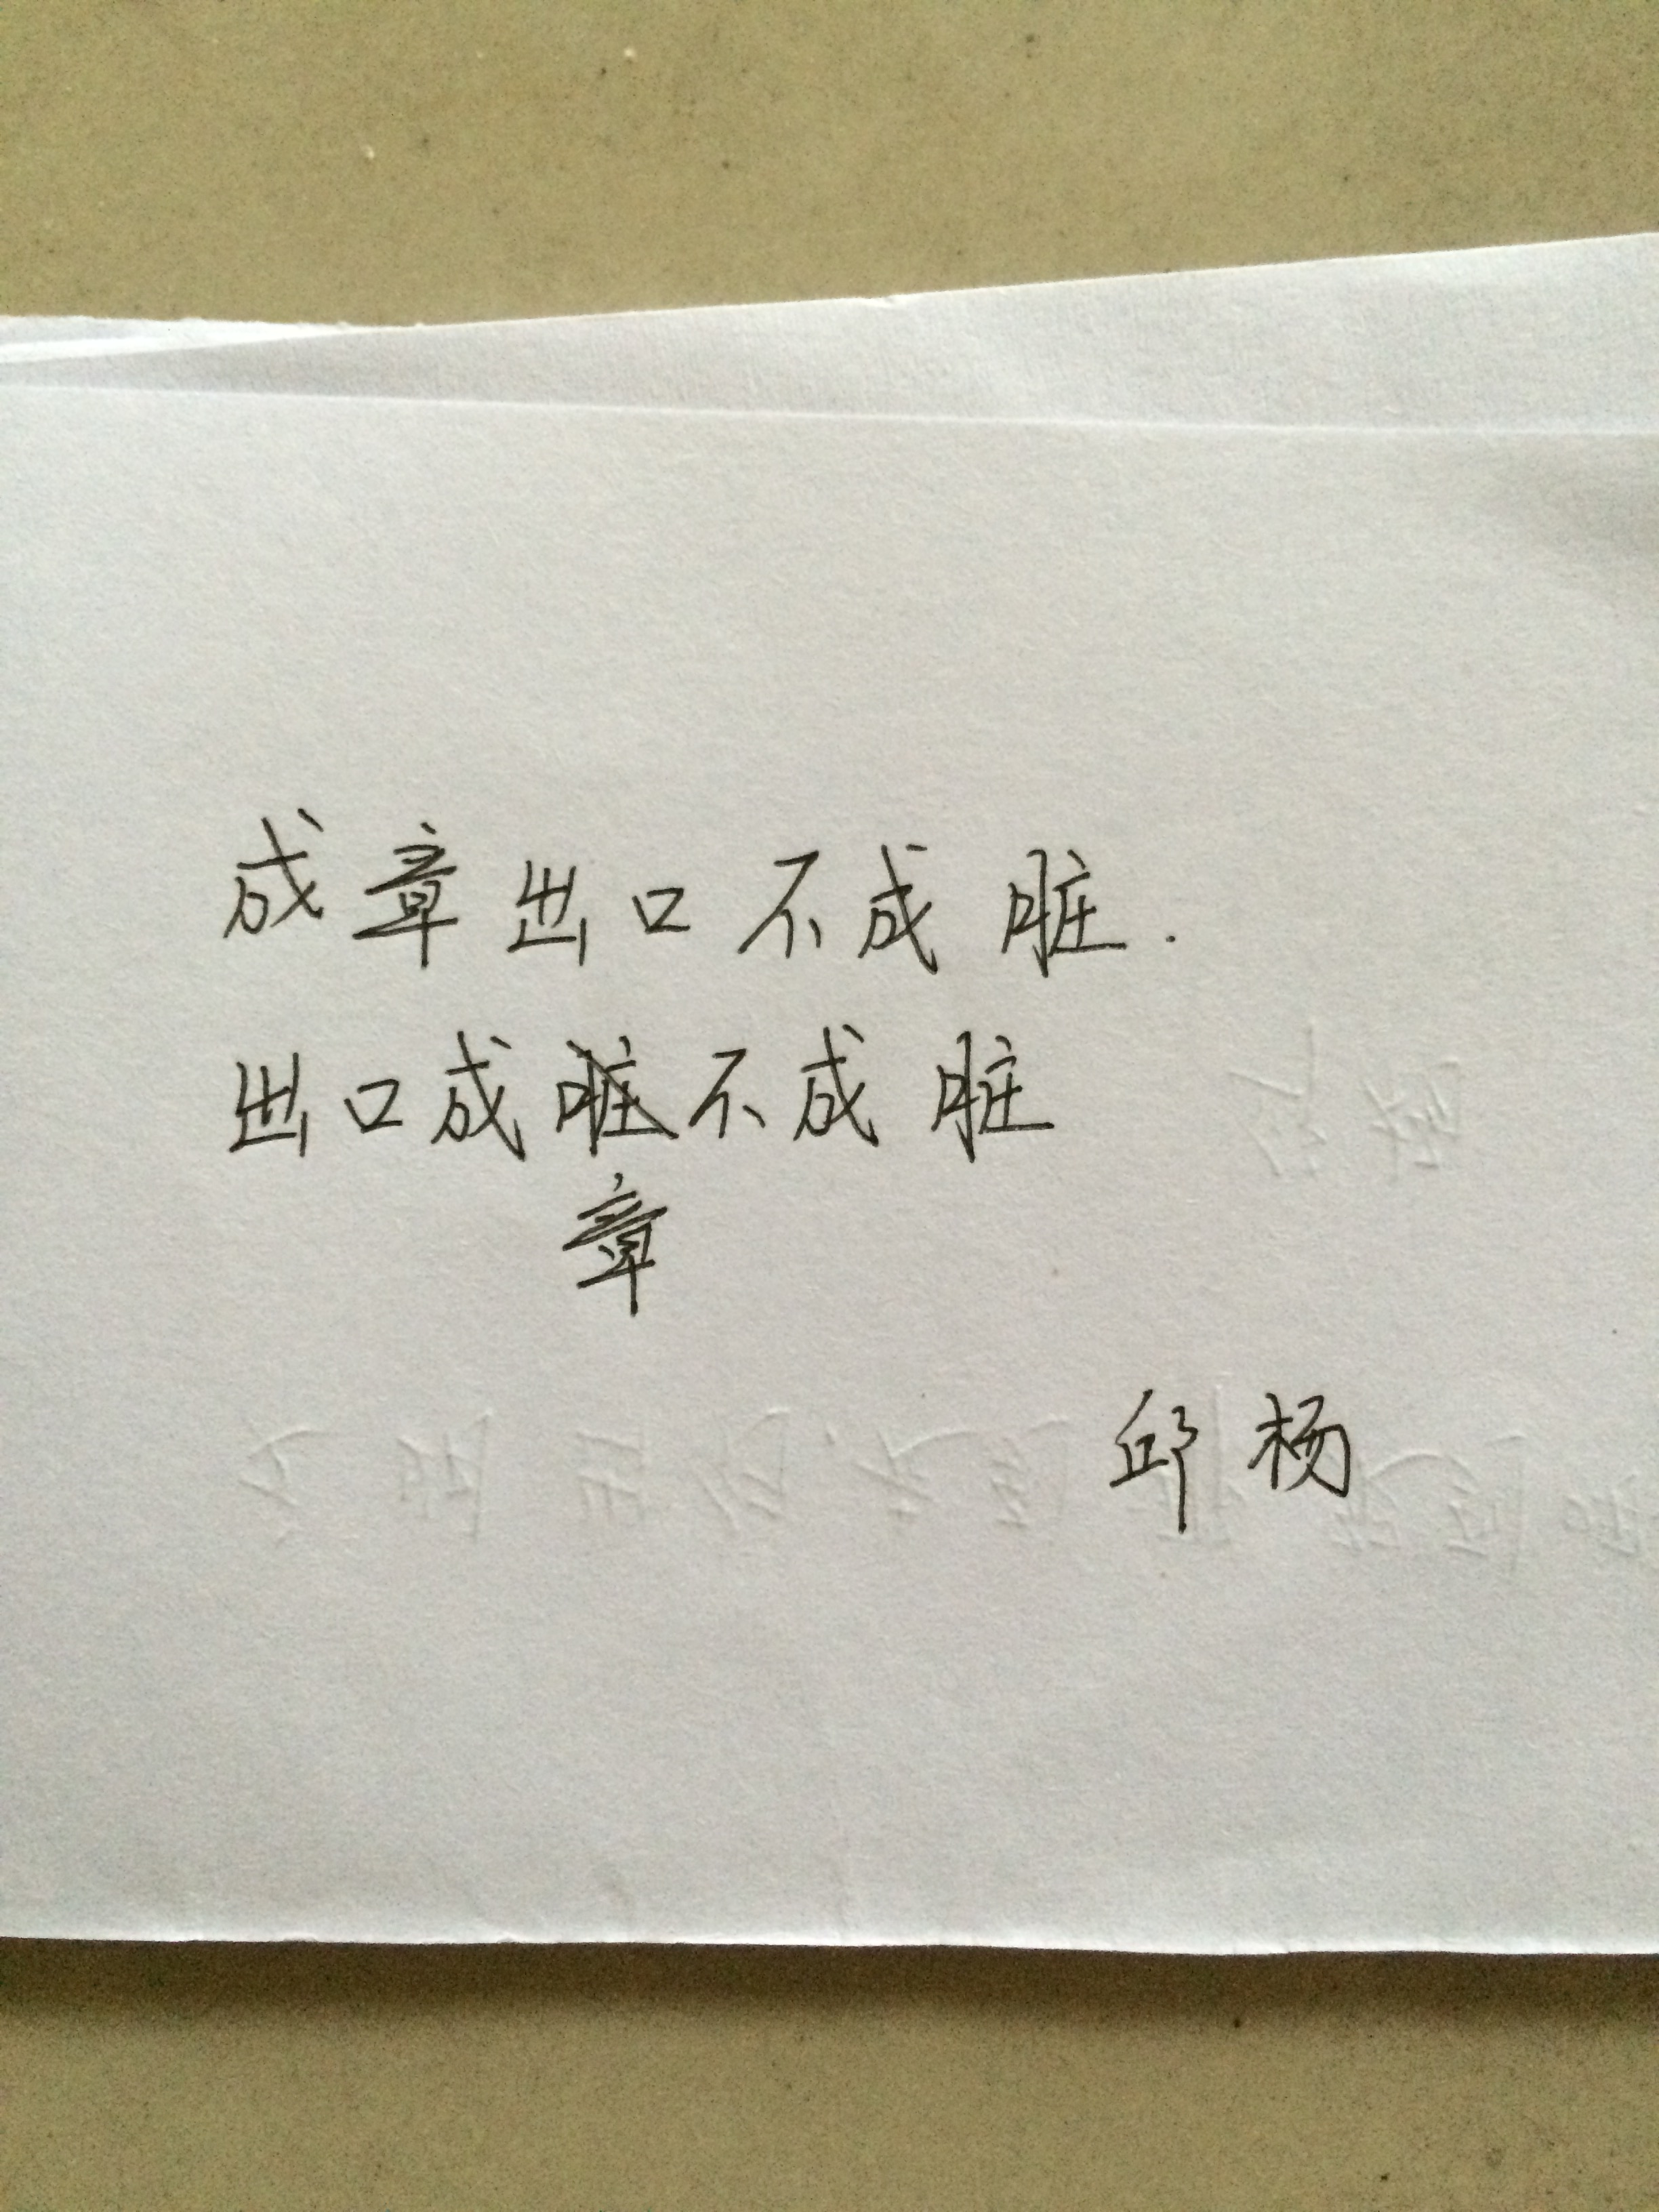 成章出口不成脏.
出口成脏不成脏
章
邱杨